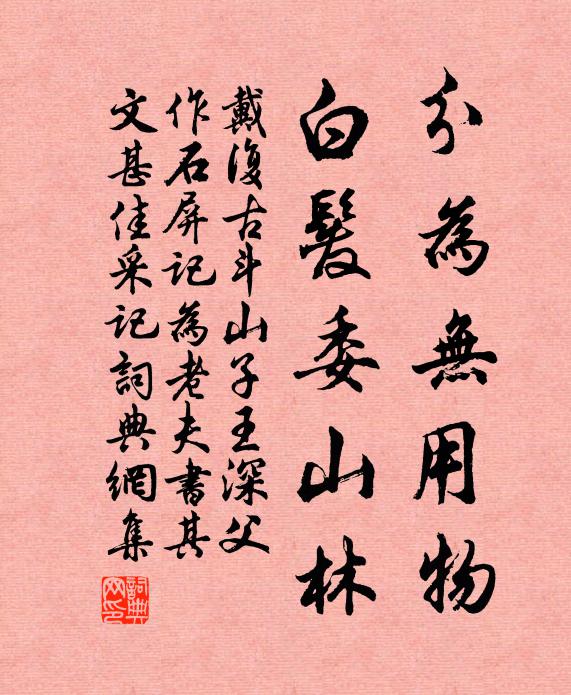 分為無用物
白髮委山林
戴復古斗山子王深父
作石屏記為老夫書其
文甚佳采記詞典網集
詞典網印